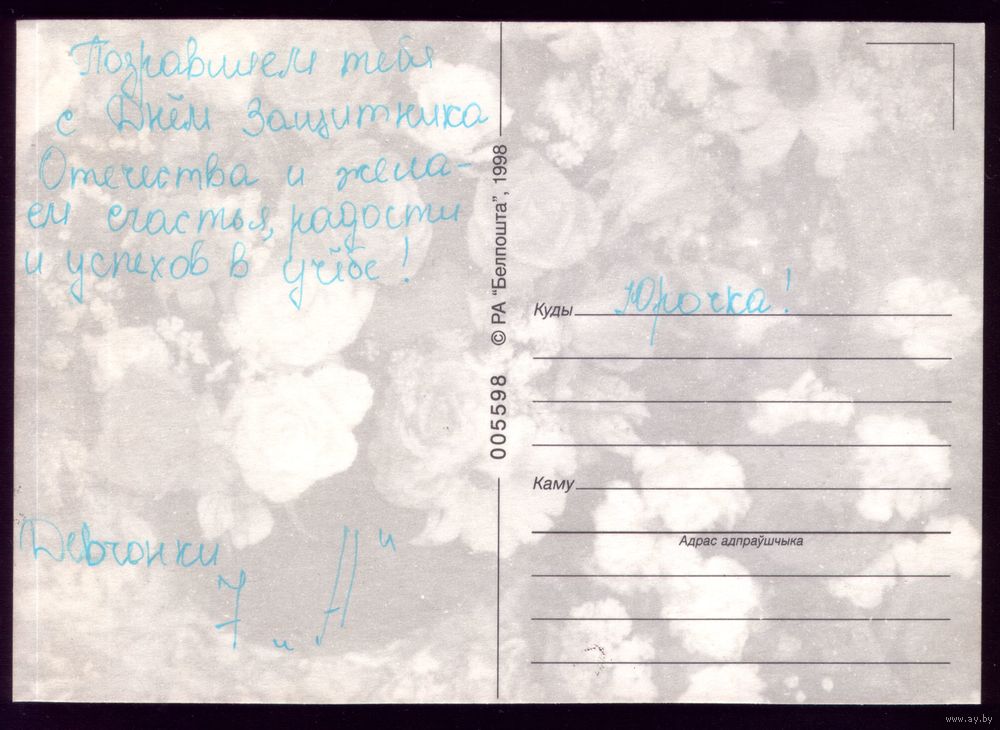 Поздравляем тебя
с Днём Защитника
Отечества и жела-
ем счастья, радости
и успехов в учёбе!
Девчонки
7 „А“
© РА “Белпошта”, 1998
005598
Куды Юрочка!
Каму
Адрас адпраўшчыка
www.ay.by